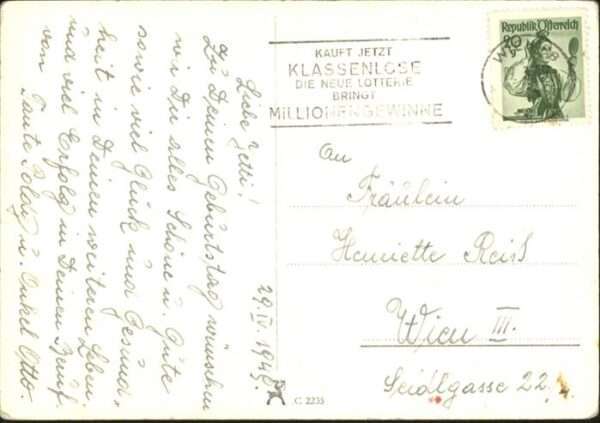 Liebe Jetti!
Zu Deinem Geburtstag wünschen
wir Dir alles Schöne u. Gute
sowie viel Glück und Gesund-
heit in Deinem weiteren Leben
und viel Erfolg in Deinem Beruf
von Tante Poldy u. Onkel Otto.
29.IV.194
KAUFT JETZT
KLASSENLOSE
DIE NEUE LOTTERIE
BRINGT
MILLIONENGEWINNE
Republik Österreich
20
An
Fräulein
Henriette Reiß
Wien III.
Seidlgasse 22
C 2235